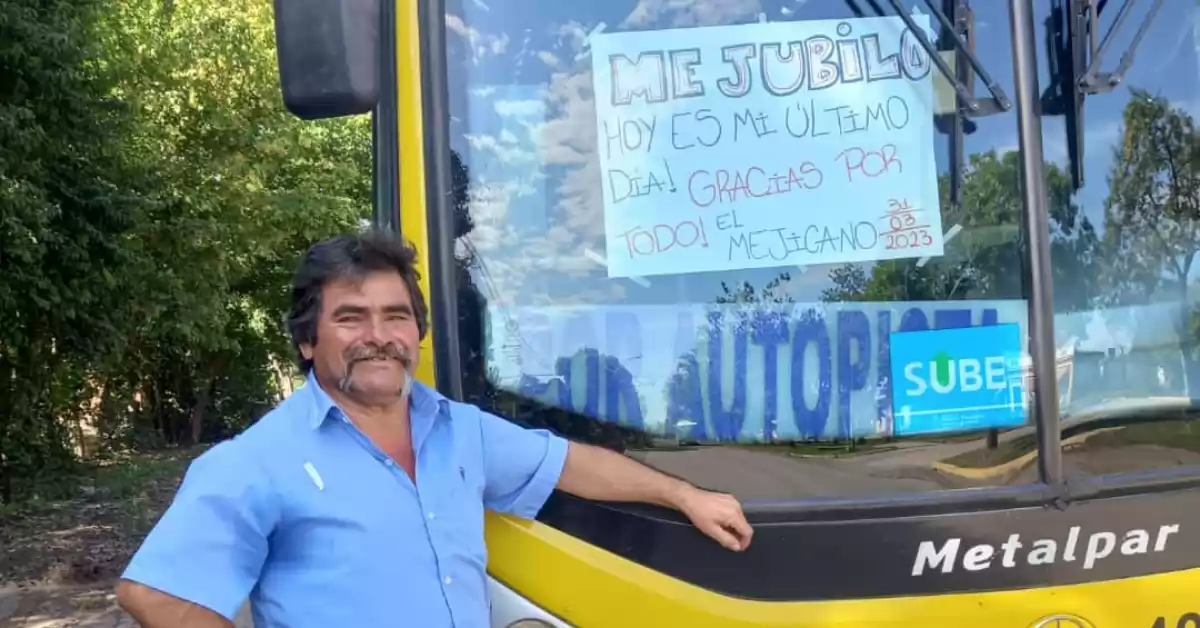 ME JUBILO
HOY ES MI ÚLTIMO
DÍA! GRACIAS POR
TODO! EL MEJICANO 31/03/2023
POR AUTOPISTA
SUBE
Metalpar